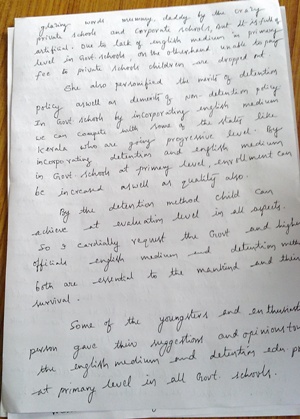 glazing words mummy, daddy by the crazy
private schools and corporate schools, but it is full of
artificial. Due to lack of english medium in primary
level in Govt. schools on the other hand unable to pay
fee to private schools children are dropped out
She also personified the merits of detention
policy aswell as demerits of non-detention policy
In Govt schools by incorporating english medium
we can compete with some of the states like
Kerala who are going progressive level. By
incorporating detention and english medium
in Govt schools at primary level, enrollment can
be increased aswell as quality also.
By the detention method child can
achieve at evaluation level in all aspects.
So I cardially requst the Govt and higher
officials english medium and detention
both are essential to the mankind and their
survival.
Some of the youngsters and enthusiastic
person gave their suggestions and opinions
the english medium and detention edn
at primary level in all Govt. schools.